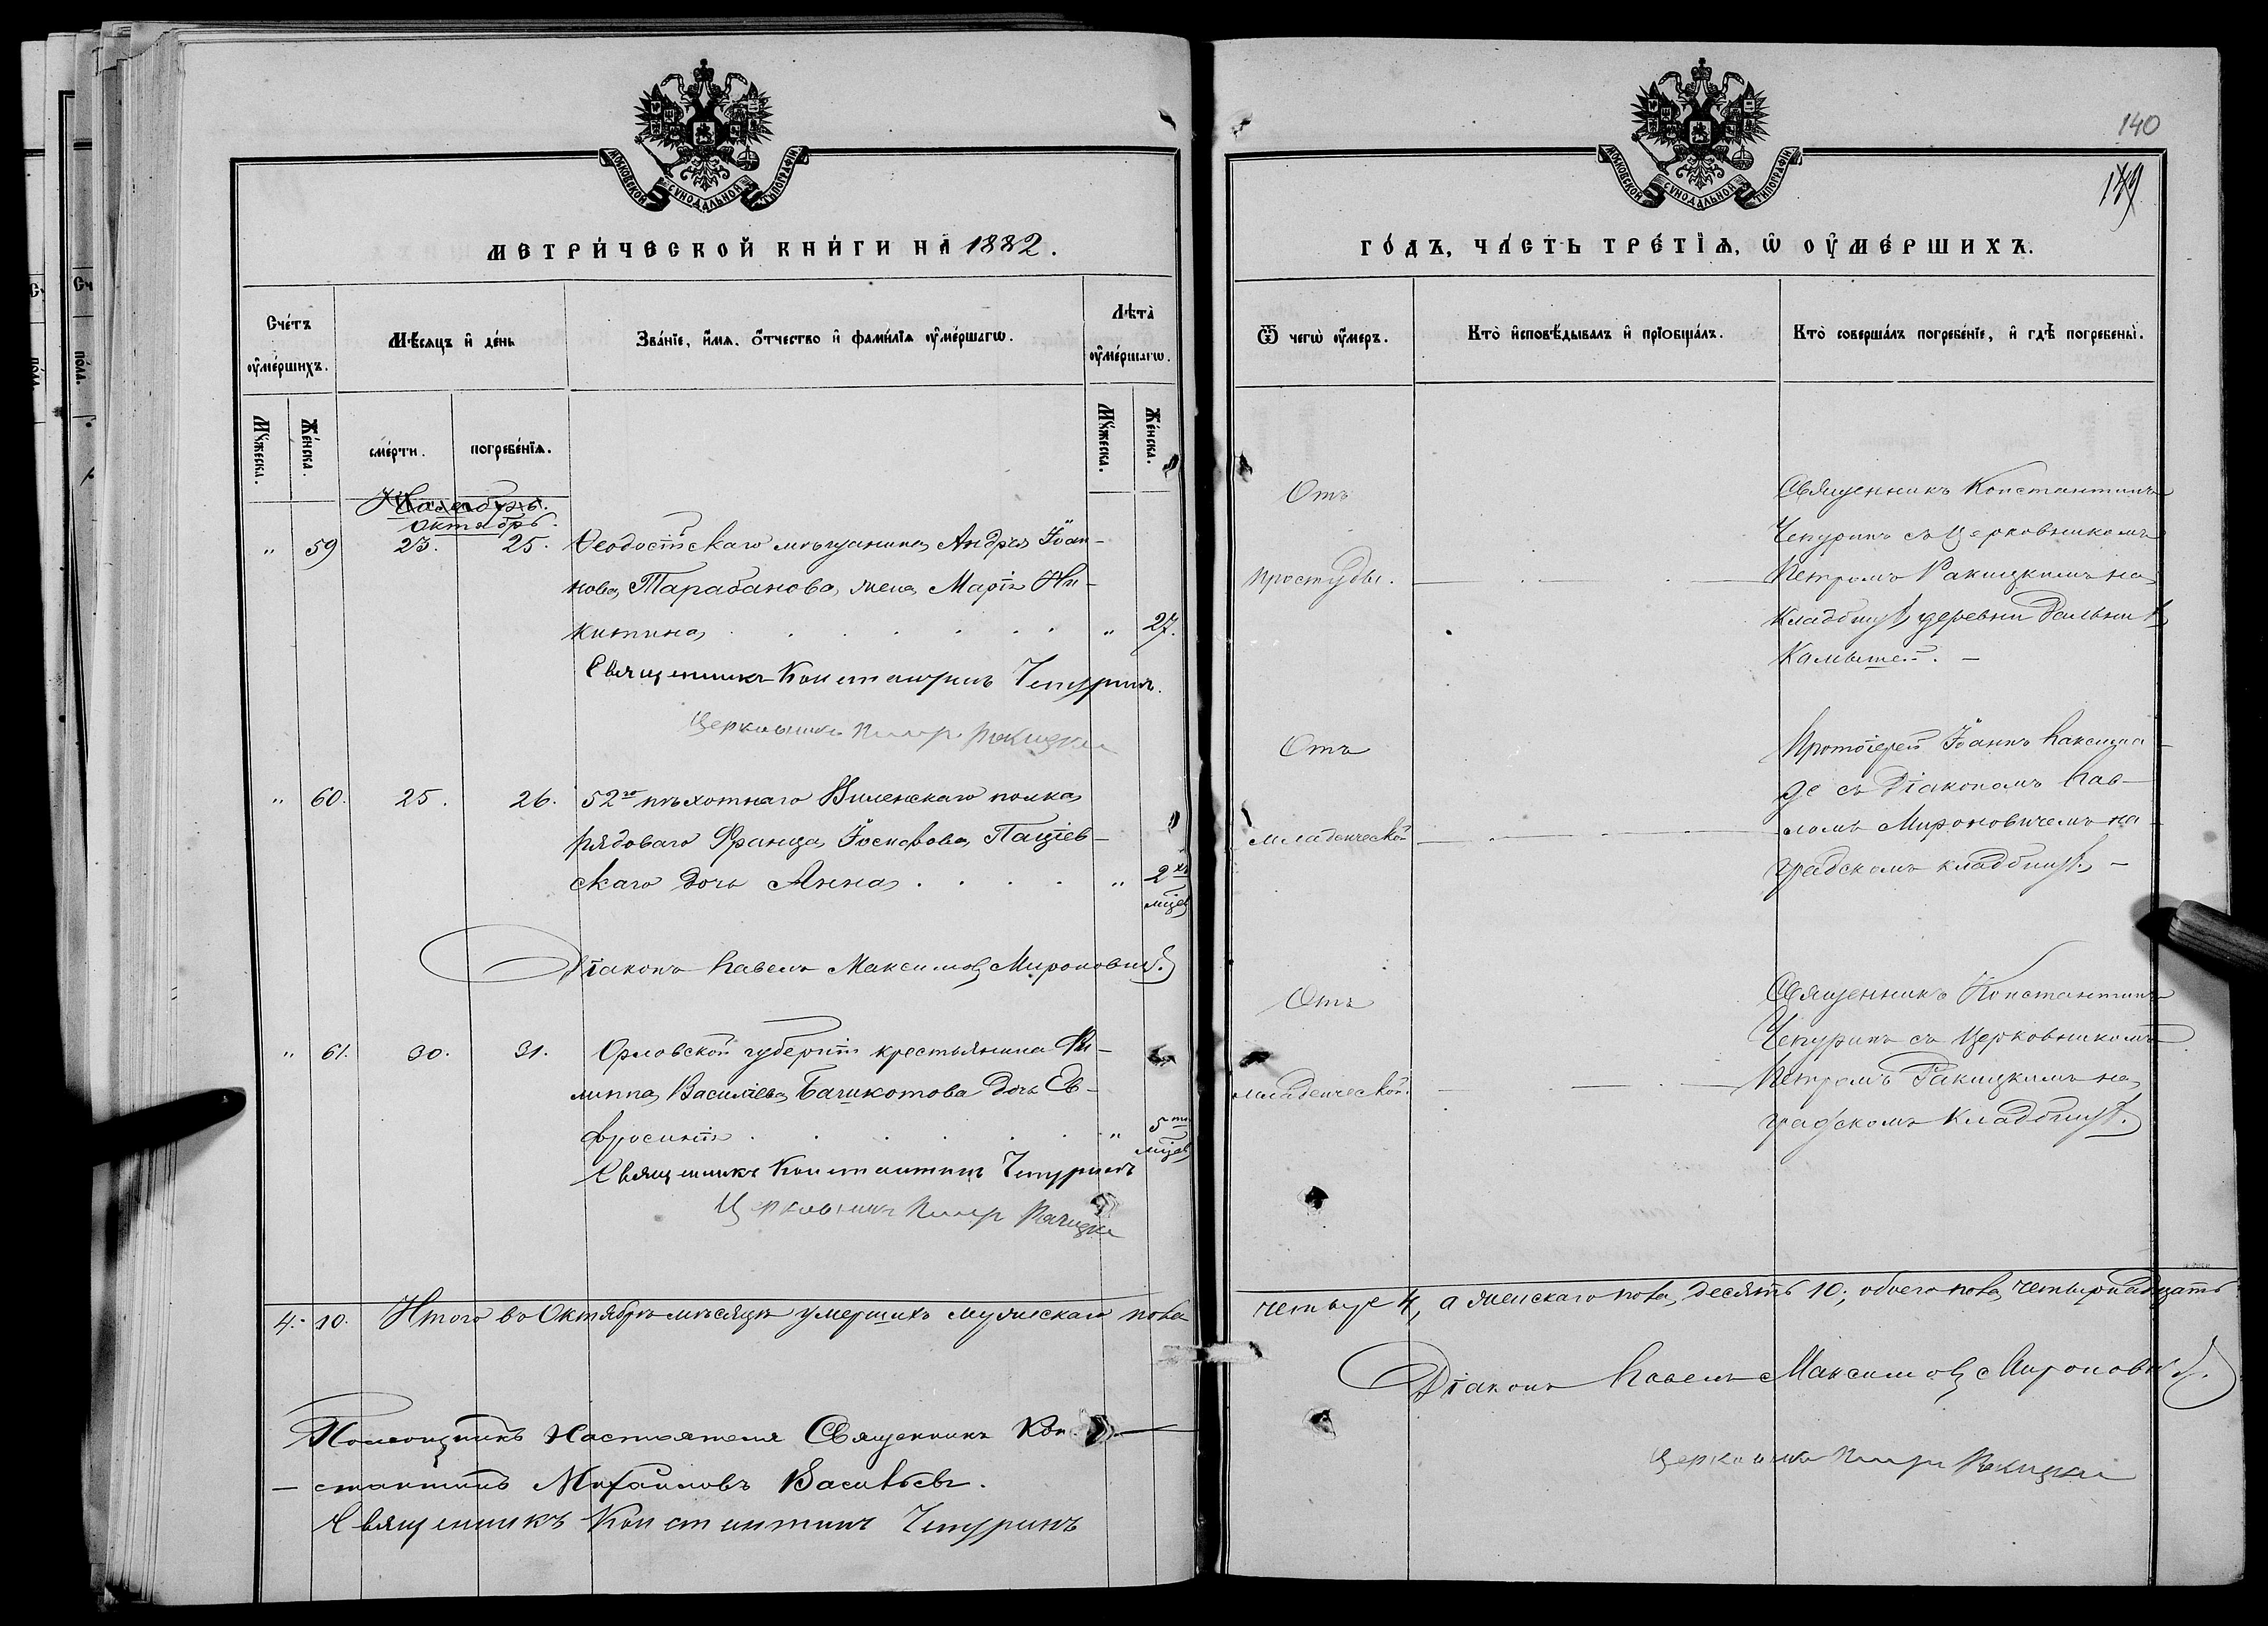 МОСКОВСКОЙ СУНОДАЛЬНОЙ ТИПОГРАФІИ
МЕТРИ́ЧЕСКОЙ КНИ́ГИ НА 1882.
Сче́тъ оу҆ме́ршихъ.
Мѣ́сяцъ и҆ де́нь
Зва́нїе, и҆́мя, ѻ҆́тчество и҆ фами́лїя оу҆ме́ршагѡ.
Лѣта̀ оу҆ме́ршагѡ.
Мꙋ́жеска.
Же́нска.
сме́рти.
погребе́нїя.
Мꙋ́жеска.
Же́нска.
Октябрь.
" 59 23. 25. Ѳеодосійскаго мѣщанина Андрея Іоан-
нова Тарабанова жена Марія Ни-
китина . . . . . . . " 27.
Священникъ Константинъ Чепуринъ.
Церковникъ Петръ Ракицкій
" 60. 25. 26. 52го пѣхотнаго Виленскаго полка
рядоваго Франца Іосифова Паціев-
скаго дочь Анна . . . . " 2хъ
мцев
Діаконъ Павелъ Максимовъ Мироновичъ.
" 61. 30. 31. Орловской губерніи крестьянина Фи-
липпа Василіева Башкотова дочь Ев-
фросинія . . . . . . " 5ти
мцев
Священникъ Константинъ Чепуринъ
Церковникъ Петръ Ракицкій
4. 10. Итого въ Октябрѣ мѣсяцѣ умершихъ мужескаго пола
Помощникъ Настоятеля Священникъ Кон-
стантинъ Михаиловъ Васильевъ.
Священникъ Константинъ Чепуринъ
140
МОСКОВСКОЙ СУНОДАЛЬНОЙ ТИПОГРАФІИ
ГО́ДЪ, ЧА́СТЬ ТРЕ́ТЇЯ, Ѡ ОУ҆МЕ́РШИХЪ.
Ѿ чегѡ̀ оу҆́меръ.
Кто̀ и҆сповѣ́дывалъ и҆ прїобща́лъ.
Кто̀ соверша́лъ погребе́нїе, и҆ гдѣ̀ погребены̀.
Отъ
простуды.
Священникъ Константинъ
Чепуринъ съ Церковникомъ
Петромъ Ракицкимъ на
кладбищѣ деревни Дальнихъ
Камышей. —
Отъ
младенческой
Протоіерей Іоаннъ Максима-
де съ Діакономъ Пав-
ломъ Мироновичемъ на
градскомъ кладбищѣ. —
Отъ
младенческой.
Священникъ Константинъ
Чепуринъ съ Церковникомъ
Петромъ Ракицкимъ на
градскомъ кладбищѣ.
четыре 4, а женскаго пола десять 10; обоего пола четырнадцать
Діаконъ Павелъ Максимовъ Мироновичъ.
Церковникъ Петръ Ракицкій